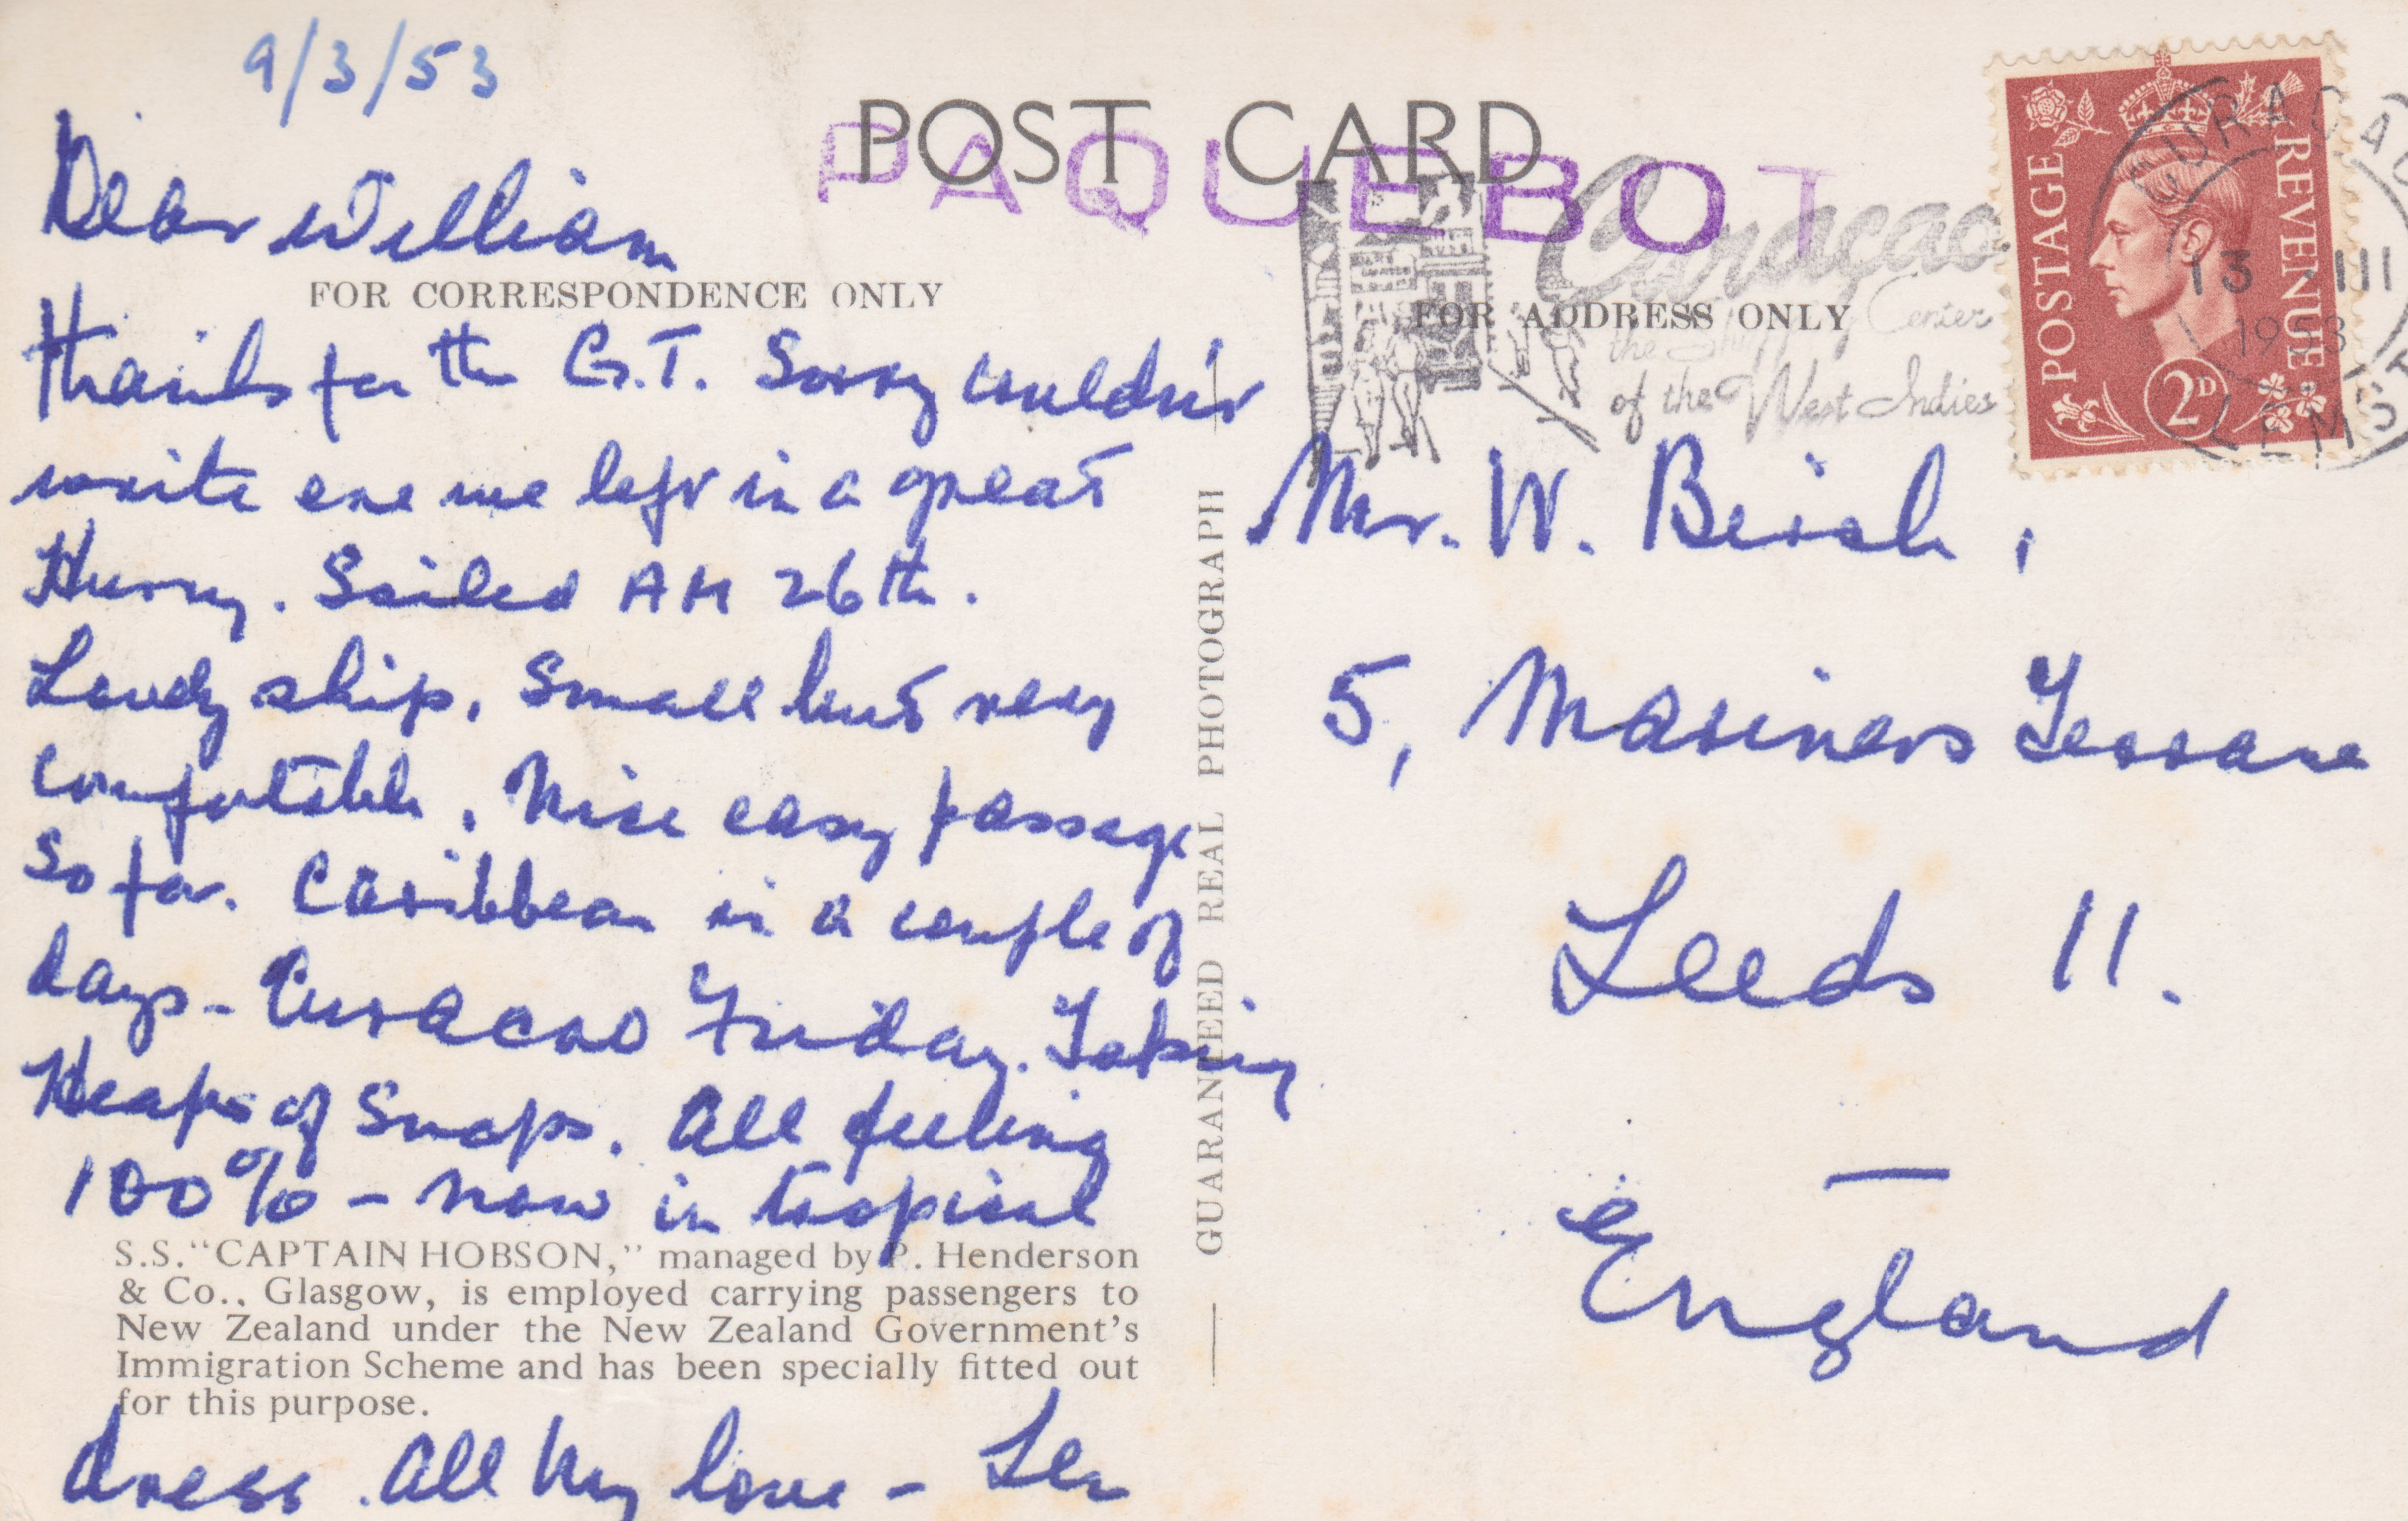 9/3/53
POST CARD
PAQUEBOT
Dear William
FOR CORRESPONDENCE ONLY
Thanks for the G.T. Sorry couldn't
write ere we left in a great
Hurry. Sailed AM 26th.
Lovely ship. Small but very
comfortable. Nice easy passage
So far. Caribbean in a couple of
days - Curacao Friday. Taking
Heaps of Snaps. All feeling
100% - now in tropical
S.S. "CAPTAIN HOBSON," managed by P. Henderson
& Co., Glasgow, is employed carrying passengers to
New Zealand under the New Zealand Government's
Immigration Scheme and has been specially fitted out
for this purpose.
dress. All my love - Len
GUARANTEED REAL PHOTOGRAPH
Curaçao
FOR ADDRESS ONLY
the Shopping Center
of the West Indies
POSTAGE
REVENUE
2D
CURAÇAO
13 III
1953
Mr. W.
5, Mariners Terrace
Leeds 11.
England